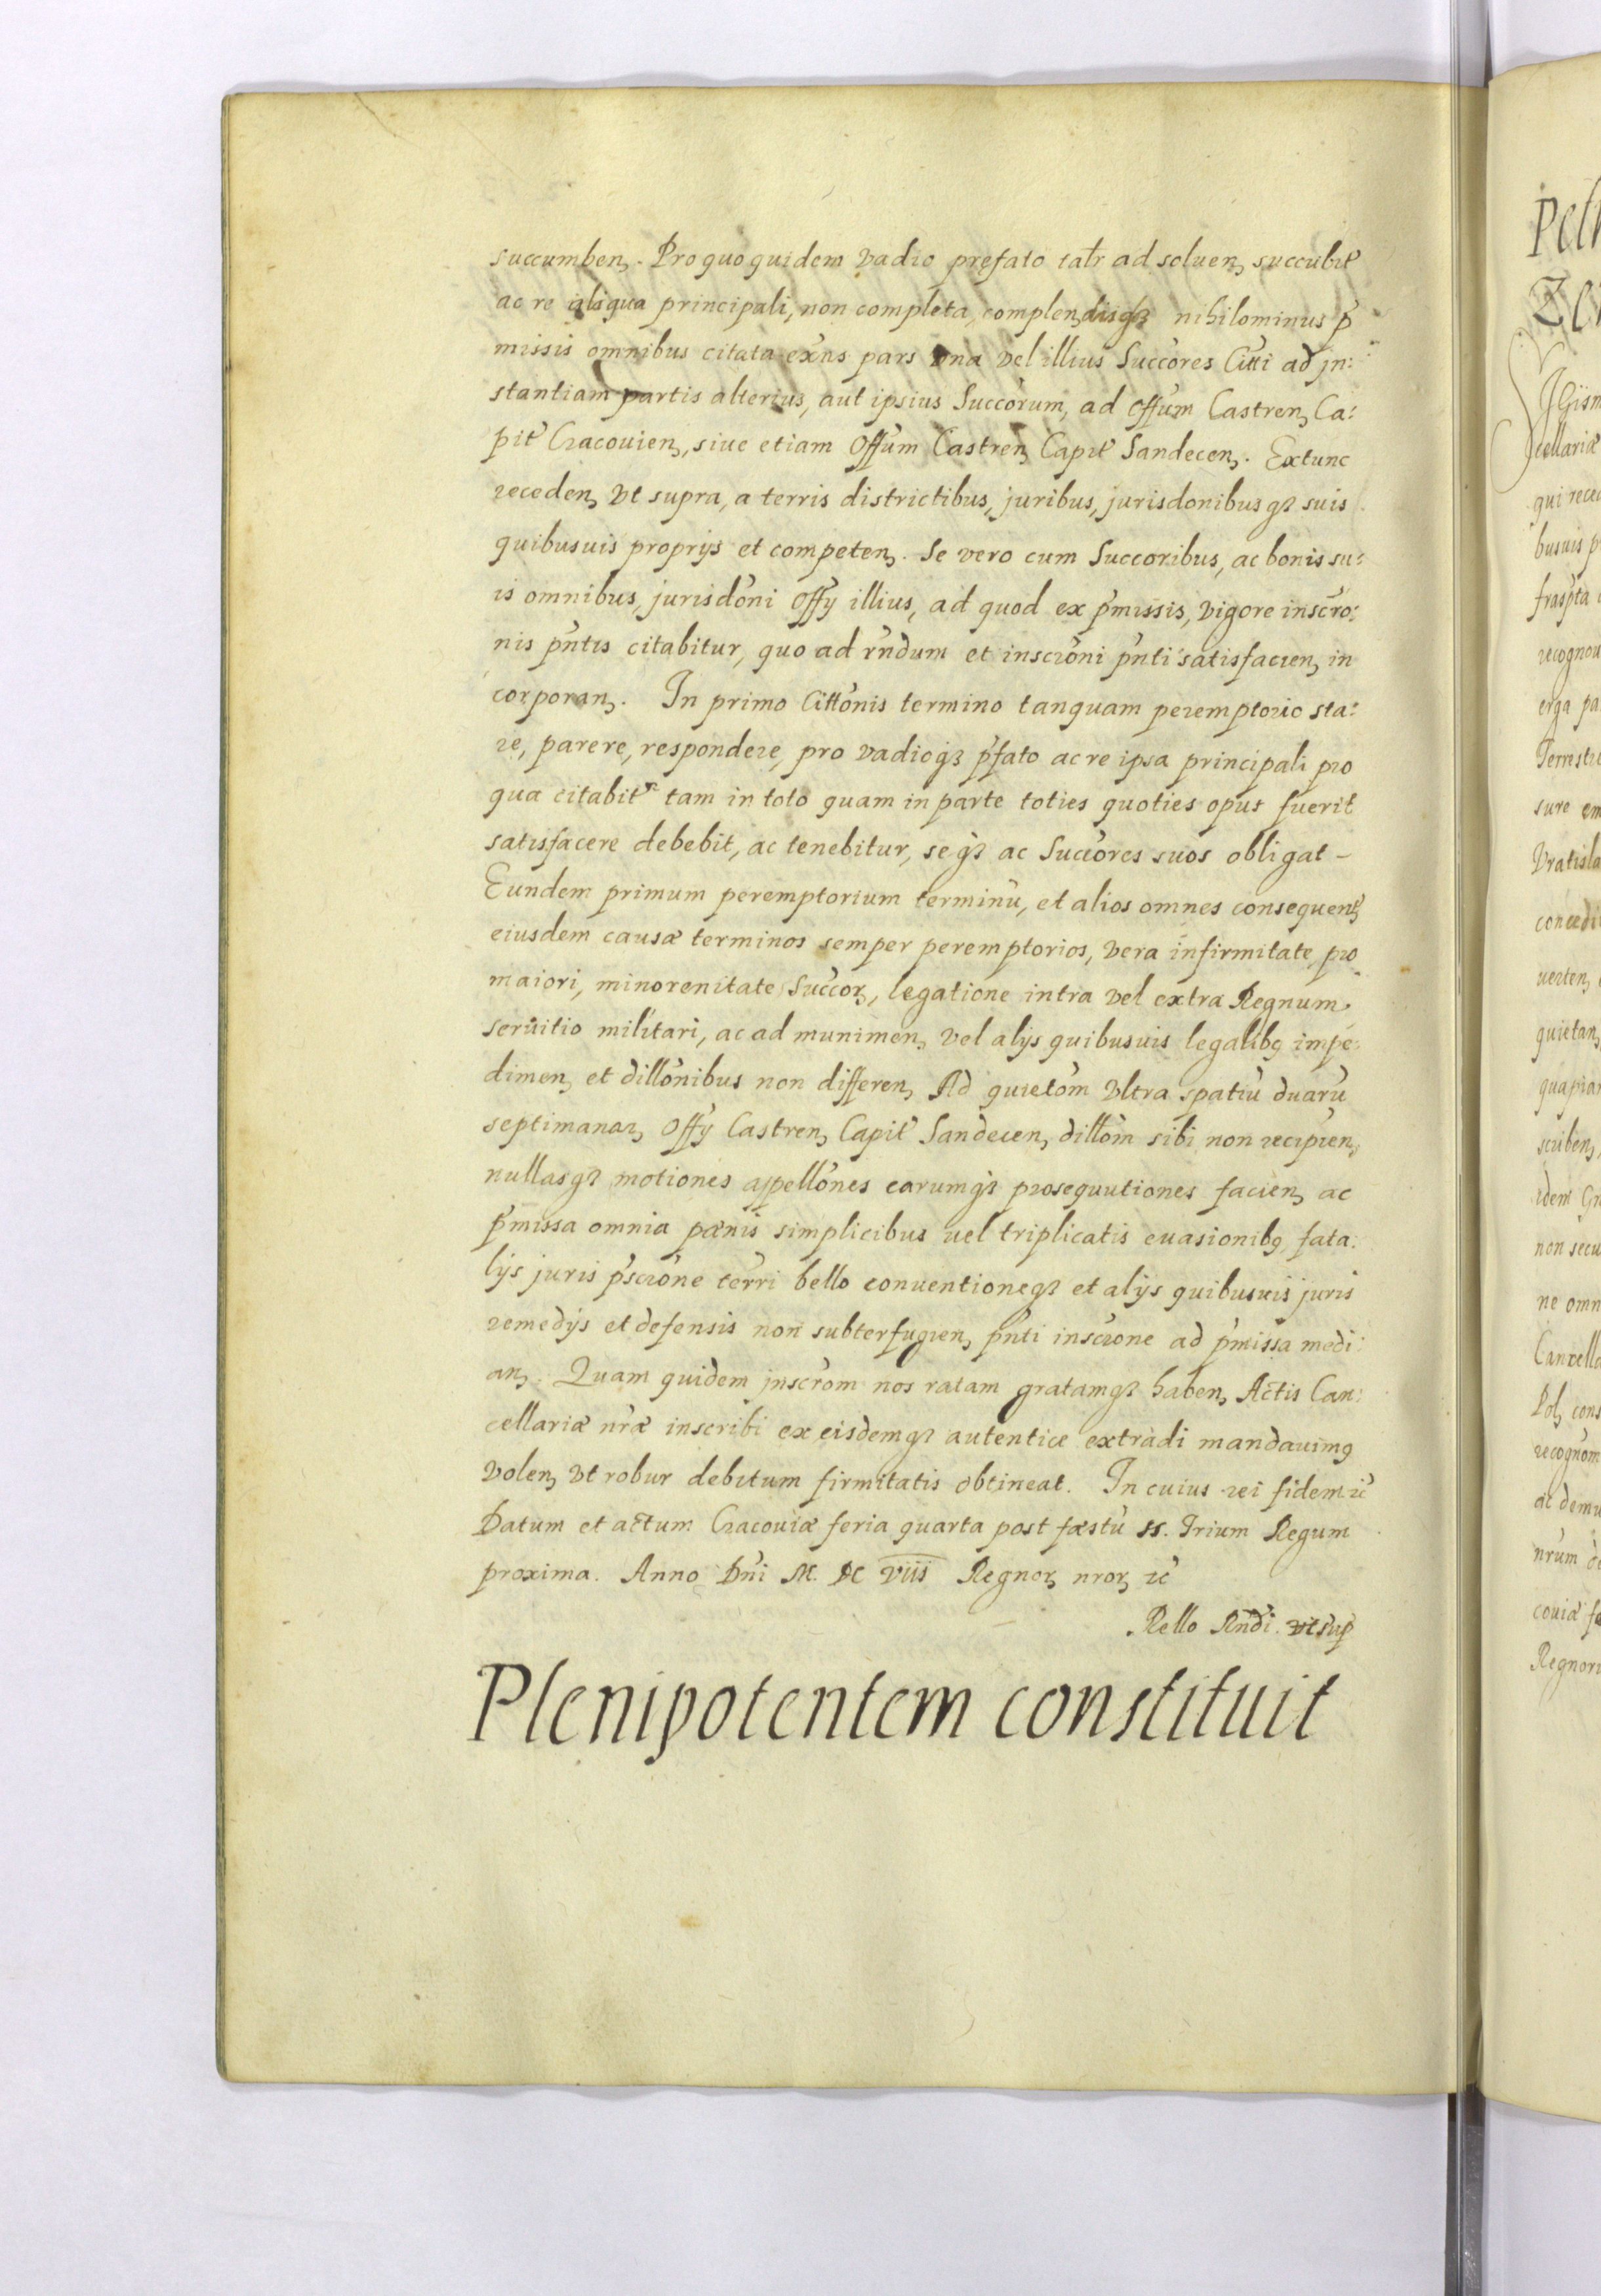 succumben. Pro quo quidem vadio prefato talr ad soluen, succubit
ac re aliqua principali, non completa, complendisq3 nihilominus p̃
missis omnibus citata exñs pars vna vel illius Succores Citti ad jn:
stantiam partis alterius, aut ipsius Succorum, ad Offum Castren, Ca:
pit Cracouien, siue etiam Offum Castren, Capit Sandecen. Extunc
receden, vt supra, a terris districtibus, juribus, jurisdonibusq3 suis
quibusuis proprijs et competen. Se vero cum Succoribus, ac bonis su:
is omnibus, jurisdoni Offy illius, ad quod ex p̃missis, vigore inscro:
nis pñtis citabitur, quo ad rñdum et inscroni pñti satisfacien, in
corporan. In primo Cittonis termino tanquam peremptorio sta:
re, parere, respondere, pro vadioq3 p̃fato ac re ipsa principali pro
qua citabitr tam in toto quam in parte toties quoties opus fuerit
satisfacere debebit, ac tenebitur, seq3 ac Succores suos obligat –
Eundem primum peremptorium terminũ, et alios omnes consequent
eiusdem causæ terminos semper peremptorios, vera infirmitate, pro
maiori, minorenitate Succor, legatione intra vel extra Regnum
seruitio militari, ac ad munimen, vel alijs quibusuis legalibq impe:
dimen, et dillonibus non differen, Ad quietom vltra spatiũ duarũ
septimanar, Offy Castren, Capit Sandecen, dillom sibi non recipien,
nullasq3 motiones appellones earumq3 prosequutiones facien, ac
p̃missa omnia pænis simplicibus vel triplicatis euasionibq, fata:
lijs juris p̃scrone terri bello conuentioneq3 et alijs quibusuis juris
remedijs et defensis non subterfugien, pñti inscrone ad p̃missa medi:
an. Quam quidem jnscrom nos ratam gratamq3 haben, Actis Can:
cellariæ nr̃æ inscribi ex eisdemq3 autentice extradi mandauimq
volen, vt robur debitum firmitatis obtineat. In cuius rei fidem rc̃
Datum et actum Cracouiæ feria quarta post fæstũ ss. Trium Regum
proxima. Anno Dñi M. DC viis Regnor, nror, rc̃
Rello Rñdi. vt sup
Plenipotentem constituit